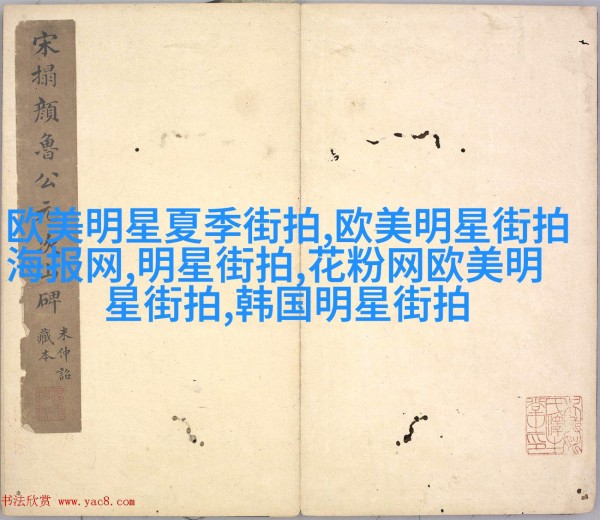 宋搨顏魯公元次山碑
米仲詔
藏本
欧美明星夏季街拍,欧美明星街拍
海报网,明星街拍,花粉网欧美明
星街拍,韩国明星街拍
书法欣赏 www.yac8.com